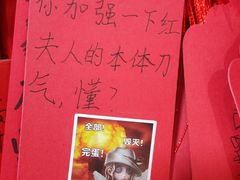 你加强一下红
夫人的本体刀
气,懂?
全部!
毁灭!
完蛋!